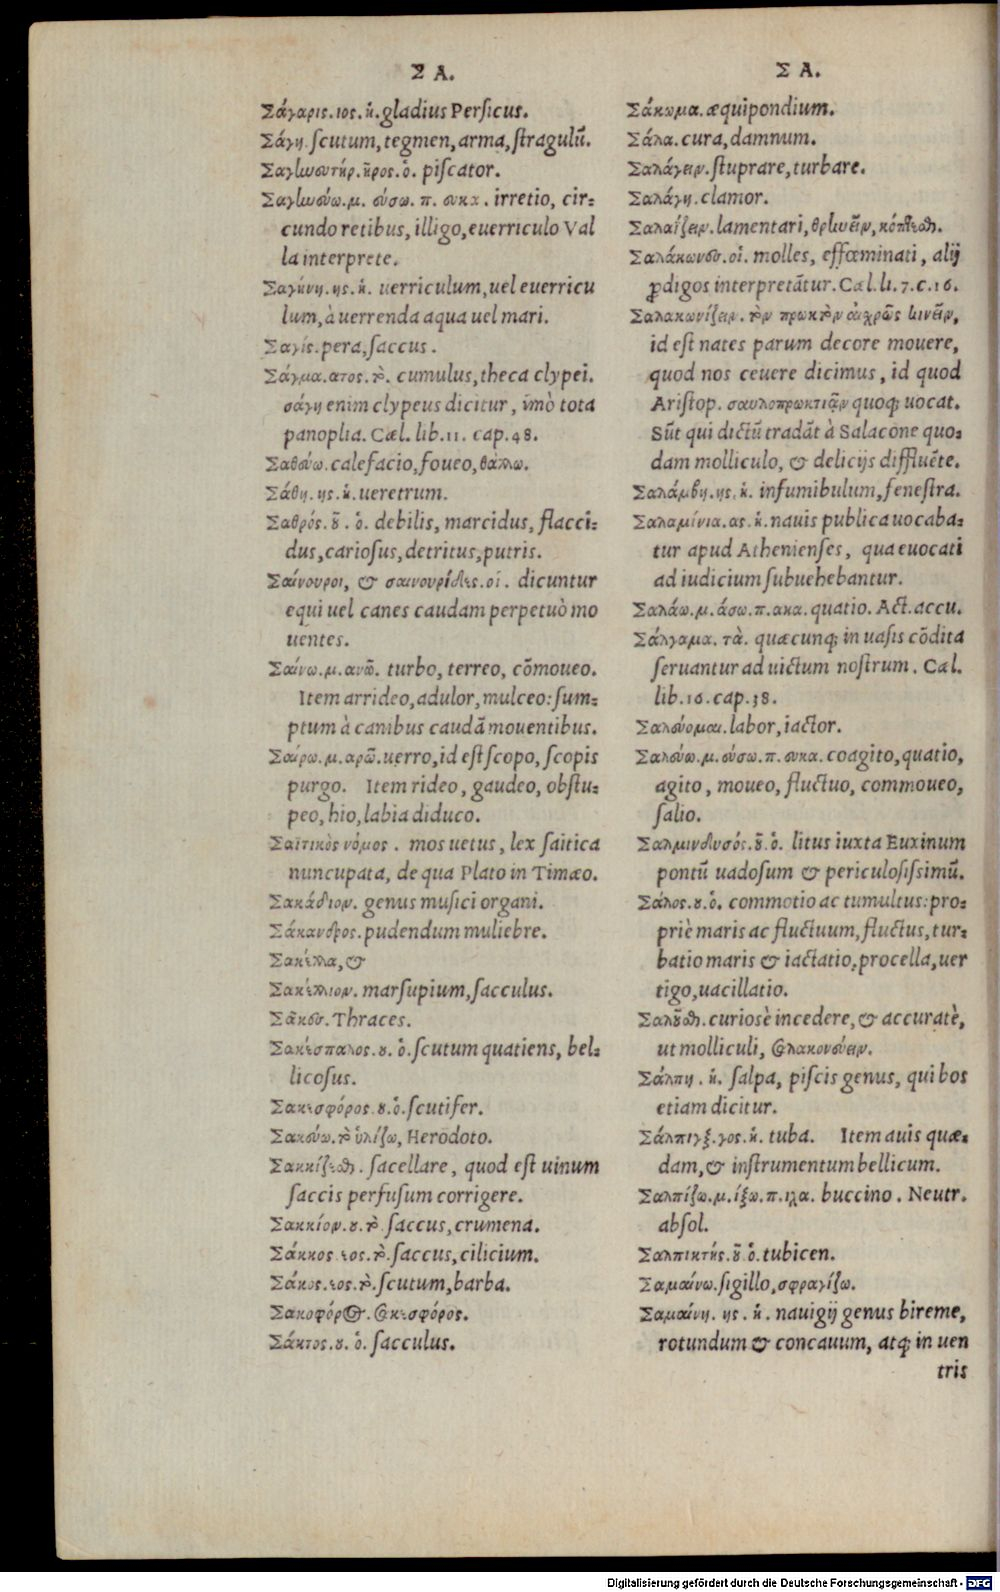 ΣΑ.
Σάγαρις.ιος.ἡ.gladius Persicus.
Σάγη.scutum,tegmen,arma,stragulū.
Σαγηνευτήρ.ῆρος.ὁ. piscator.
Σαγηνεύω.μ. εύσω. π. ευκα. irretio, cir=
cundo retibus, illigo,euerriculo Val
la interprete.
Σαγήνη.ης.ἡ. uerriculum,uel euerricu
lum,à uerrenda aqua uel mari.
Σαγίς.pera,saccus.
Σάγμα.ατος.τὸ. cumulus,theca clypei.
σάγη enim clypeus dicitur, imò tota
panoplia. Cæl. lib.11. cap.48.
Σαθεύω.calefacio,foueo,θάλπω.
Σάθη.ης.ἡ.ueretrum.
Σαθρός.οῦ. ὁ. debilis, marcidus, flacci=
dus,cariosus,detritus,putris.
Σαίνουροι, & σαινουρίδες.οἱ. dicuntur
equi uel canes caudam perpetuò mo
uentes.
Σαίνω.μ.ανῶ. turbo, terreo, cōmoueo.
Item arrideo,adulor,mulceo:sum=
ptum à canibus caudā mouentibus.
Σαίρω.μ.αρῶ.uerro,id est scopo,scopis
purgo. Item rideo, gaudeo, obstu=
peo,hio,labia diduco.
Σαϊτικὸς νόμος. mos uetus, lex saitica
nuncupata, de qua Plato in Timæo.
Σακάδιον. genus musici organi.
Σάκανδρος.pudendum muliebre.
Σακέλλα,&
Σακέλλιον. marsupium,sacculus.
Σᾶκευ.Thraces.
Σακέσπαλος.ου.ὁ.scutum quatiens, bel=
licosus.
Σακεσφόρος.ου.ὁ.scutifer.
Σακεύω.τὸ ὑλίζω, Herodoto.
Σακκίζεσθαι. sacellare, quod est uinum
saccis perfusum corrigere.
Σακκίον.ου.τὸ.saccus,crumena.
Σάκκος.εος.τὸ.saccus,cilicium.
Σάκος.εος.τὸ.scutum,barba.
Σακοφόρος.σακεσφόρος.
Σάκτος.ου. ὁ. sacculus.
ΣΑ.
Σάκωμα. æquipondium.
Σάλα. cura,damnum.
Σαλάγειν.stuprare,turbare.
Σαλάγη.clamor.
Σαλαΐζειν.lamentari,θρηνεῖν,κόπτεσθαι.
Σαλάκωνευ.οἱ. molles, effœminati, alij
ꝓdigos interpretātur. Cæl.li.7.c.16.
Σαλακωνίζειν. τὸν πρωκτὸν αἰχρῶς κινεῖν,
id est nates parum decore mouere,
quod nos ceuere dicimus, id quod
Aristop. σαυλοπρωκτιᾷν quoq; uocat.
Sūt qui dictū tradāt à Salacone quo=
dam molliculo, & delicijs diffluēte.
Σαλάμβη.ης.ἡ. infumibulum,fenestra.
Σαλαμίνια.ας.ἡ.nauis publica uocaba=
tur apud Athenienses, qua euocati
ad iudicium subuehebantur.
Σαλάω.μ.άσω.π.ακα.quatio. Act.accu.
Σάλγαμα. τὰ. quæcunq; in uasis cōdita
seruantur ad uictum nostrum. Cæl.
lib.16.cap.38.
Σαλεύομαι.labor,iactor.
Σαλεύω.μ.εύσω.π. ευκα. coagito,quatio,
agito, moueo, fluctuo, commoueo,
salio.
Σαλμινδυσός.οῦ.ὁ. litus iuxta Euxinum
pontū uadosum & periculosissimū.
Σάλος.ου.ὁ. commotio ac tumultus:pro=
priè maris ac fluctuum,fluctus,tur=
batio maris & iactatio,procella,uer
tigo,uacillatio.
Σαλοῦσθαι.curiosè incedere, & accuratè,
ut molliculi, σαλακονεύειν.
Σάλπη. ἡ. salpa, piscis genus, qui bos
etiam dicitur.
Σάλπιγξ.γος.ἡ. tuba. Item auis quæ=
dam,& instrumentum bellicum.
Σαλπίζω.μ.ίξω.π.ιχα. buccino. Neutr.
absol.
Σαλπικτής.οῦ.ὁ.tubicen.
Σαμαίνω.sigillo,σφραγίζω.
Σαμαίνη. ης. ἡ. nauigij genus bireme,
rotundum & concauum, atq; in uen
tris
Digitalisierung gefördert durch die Deutsche Forschungsgemeinschaft - DFG